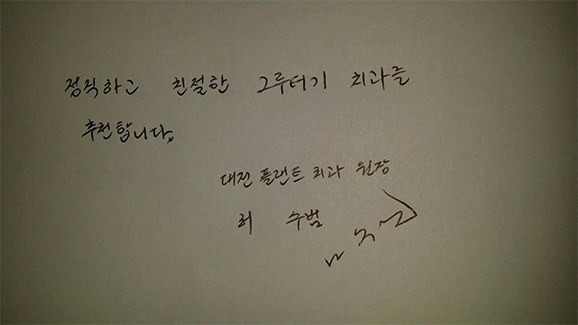 정직하고 친절한 그루터기 치과를
추천합니다.
대전 플랜트 치과 원장
허 수범